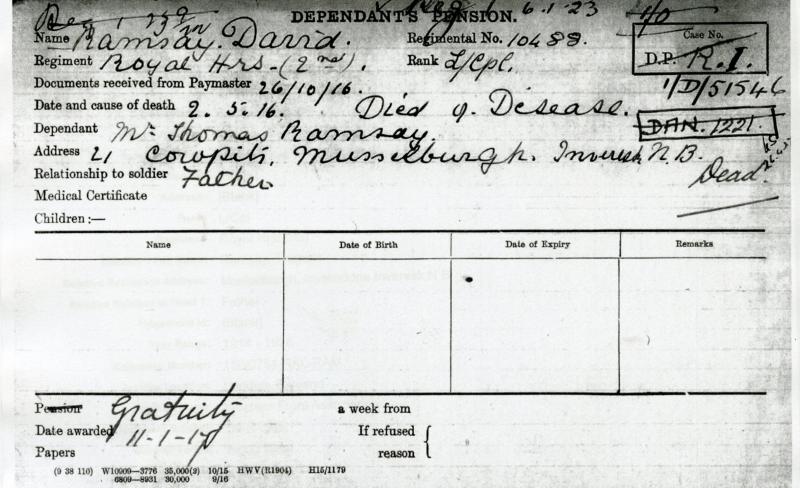 DEPENDANT'S PENSION. 6-1-23
Name Ramsay. David. Regimental No. 10488. Case No.
Regiment Royal Hrs. (2nd). Rank L/Cpl. D.P. R.I.
Documents received from Paymaster 26/10/16. 1/D/51546
Date and cause of death 2. 5. 16. Died of Disease. DAN. 1221.
Dependant Mr Thomas Ramsay.
Address 21 Cowpits, Musselburgh. Inveresk N.B.
Relationship to soldier Father Dead.
Medical Certificate
Children :—
Name Date of Birth Date of Expiry Remarks
Pension Gratuity a week from
Date awarded 11-1-17 If refused
Papers reason
(9 38 110) W10909—3776 35,000(2) 10/15 HWV(R1904) H15/1179
6809—8931 30,000 9/16